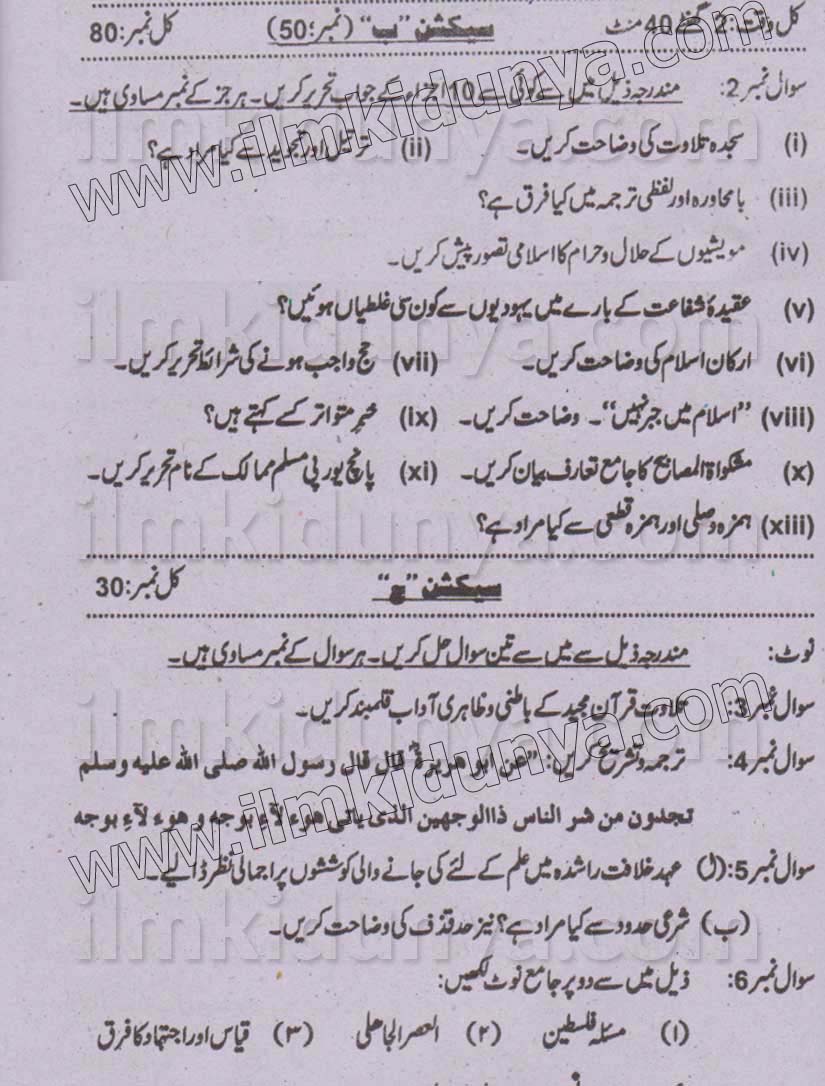 کل وقت: 2 گھنٹے 40 منٹ سیکشن "ب" (نمبر: 50) کل نمبر: 80
سوال نمبر 2: مندرجہ ذیل میں سے کوئی سے 10 اجزاء کے جواب تحریر کریں۔ ہر جز کے نمبر مساوی ہیں۔
(i) سجدہ تلاوت کی وضاحت کریں۔ (ii) ترتیل اور تجوید سے کیا مراد ہے؟
(iii) بامحاورہ اور لفظی ترجمہ میں کیا فرق ہے؟
(iv) مویشیوں کے حلال و حرام کا اسلامی تصور پیش کریں۔
(v) عقیدۂ شفاعت کے بارے میں یہودیوں سے کون سی غلطیاں ہوئیں؟
(vi) ارکان اسلام کی وضاحت کریں۔ (vii) حج واجب ہونے کی شرائط تحریر کریں۔
(viii) "اسلام میں جبر نہیں"۔ وضاحت کریں۔ (ix) خبرِ متواتر کسے کہتے ہیں؟
(x) مشکواۃ المصابیح کا جامع تعارف بیان کریں۔ (xi) پانچ یورپی مسلم ممالک کے نام تحریر کریں۔
(xiii) ہمزہ وصلی اور ہمزہ قطعی سے کیا مراد ہے؟
سیکشن "ج" کل نمبر: 30
نوٹ: مندرجہ ذیل سے میں سے تین سوال حل کریں۔ ہر سوال کے نمبر مساوی ہیں۔
سوال نمبر 3: تلاوت قرآن مجید کے باطنی و ظاہری آداب قلمبند کریں۔
سوال نمبر 4: ترجمہ و تشریح کریں: "عن ابو هريرةؓ قال قال رسول الله صلى الله عليه وسلم
تجدون من شر الناس ذاالوجهين الذى ياتى هوء لآءِ بوجه و هوء لآءِ بوجه
سوال نمبر 5: (ل) عہد خلافت راشدہ میں علم کے لئے کی جانے والی کوششوں پر اجمالی نظر ڈالیے۔
(ب) شرعی حدود سے کیا مراد ہے؟ نیز حد قذف کی وضاحت کریں۔
سوال نمبر 6: ذیل میں سے دو پر جامع نوٹ لکھیں:
(۱) مسئلہ فلسطین (۲) العصر الجاھلی (۳) قیاس اور اجتہاد کا فرق
www.ilmkidunya.com
www.ilmkidunya.com
ilmkidunya.com
ilmkidunya.com
ilmkidunya.com
ilmkidunya.com
ilmkidunya.com